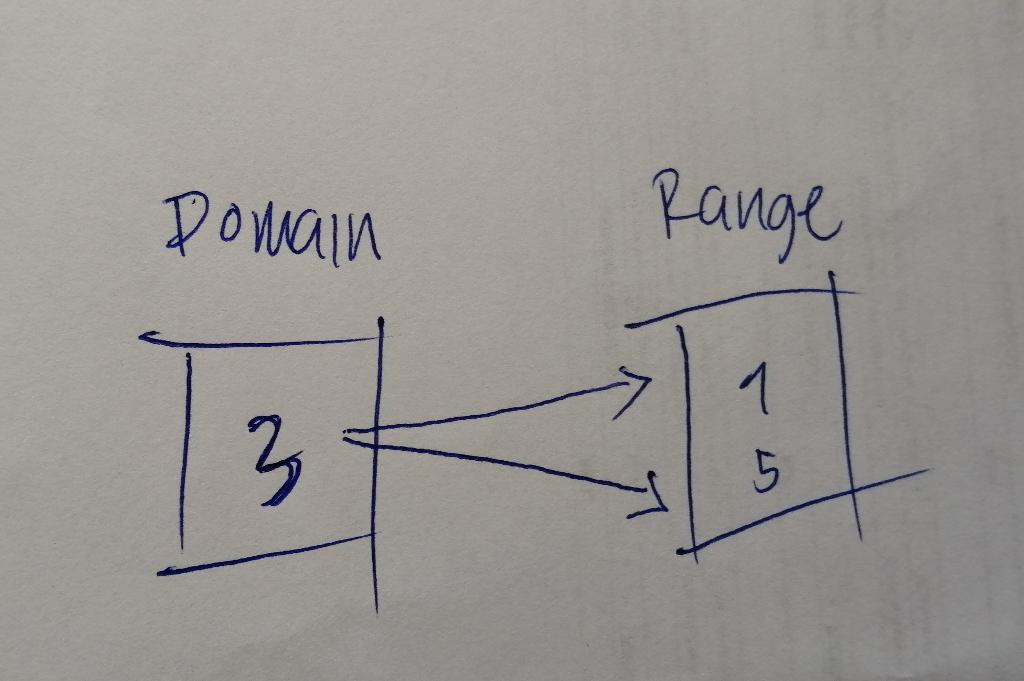 Domain
Range
3
1
5